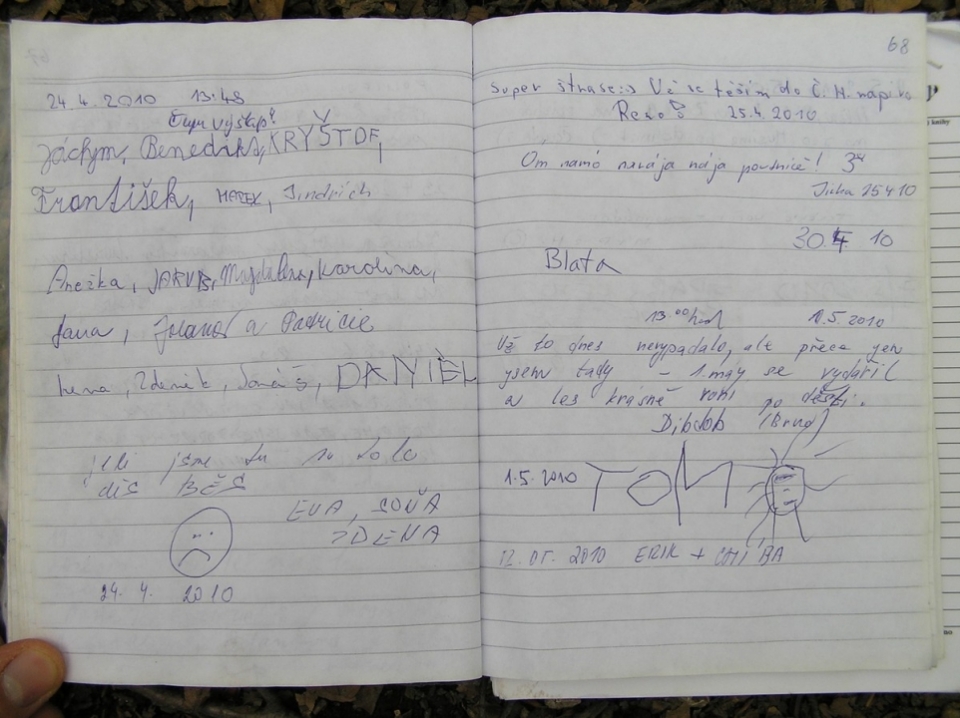 24. 4. 2010 13:48
Jáchym, Benedikt, KRYŠTOF,
František, MAREK, Jindřich
Anežka, Magdalena, Karolina,
Jana, a Patricie
Lena, Zdeněk, Tomáš, DANIEL
jeli jsme tu na kole
diś BĚS
EVA, SOŇA
ZDENA
24. 4. 2010
68
super štrase:) Už se těším do Č. H. napivo
25.4.2010
Óm namó nája povdnicě!
Jitka 25 4 10
30.4 10
Blata
13.00 hod 1.5.2010
Už to dnes nevypadalo, ale přece jen
jsem tady – 1.máj se vydařil
a les krásně voní po dešti.
Dibdob (Brno)
1.5.2010 TOM
12. 05. 2010 ERIK + CHÍBA